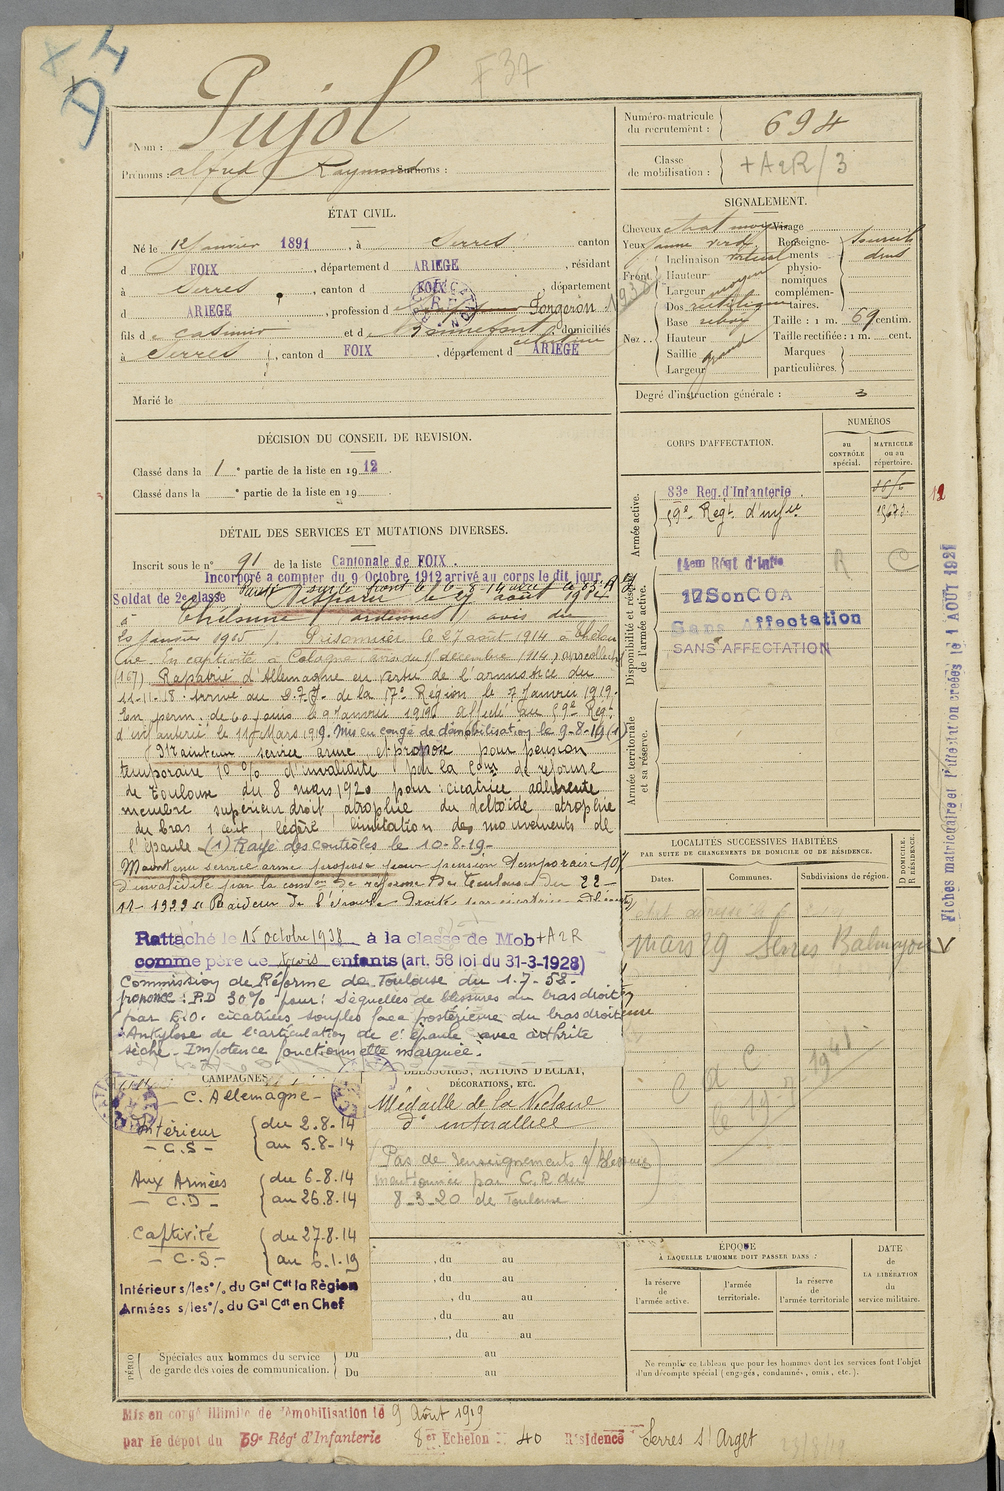 F 37
Nom : Pujol
Prénoms : alfred Raymond Surnoms :
Numéro matricule du recrutement : 694
Classe de mobilisation : + A2R/3
ÉTAT CIVIL.
Né le 12 Janvier 1891, à Serres canton
d FOIX, département d ARIEGE, résidant
à Serres, canton d FOIX, département
d ARIEGE, profession d Forgeron
fils de Casimir et d , domiciliés
à Serres, canton d FOIX, département d ARIEGE
Marié le
SIGNALEMENT.
Cheveux chat moyen
Yeux jaune verd
Front
Inclinaison vertical
Hauteur
Largeur moyen
Nez
Dos rectiligne
Base
Hauteur
Saillie grand
Largeur
Visage
Renseignements physionomiques complémentaires. sourcils drus
Taille : 1 m. 69 centim.
Taille rectifiée : 1 m. cent.
Marques particulières.
Degré d'instruction générale : 3
DÉCISION DU CONSEIL DE REVISION.
Classé dans la 1e partie de la liste en 1912.
Classé dans la e partie de la liste en 19
DÉTAIL DES SERVICES ET MUTATIONS DIVERSES.
Inscrit sous le n° 91 de la liste Cantonale de FOIX.
Incorporé a compter du 9 Octobre 1912 arrivé au corps le dit jour
Soldat de 2e classe
Disparu le 27 août 1914
à Thélonne (ardennes) avis du
25 janvier 1915. Prisonnier le 27 août 1914 à Thélon
ne. En captivité à Cologne (avis du 1er décembre 1914)
(167) Rapatrié d'Allemagne en vertu de l'armistice du
11-11-18. Arrivé au D.T.I. de la 17e Région le 7 Janvier 1919.
En perm. de 60 jours le 9 Janvier 1919. Affecté au 59e Regt
d'infanterie le 11 Mars 1919. Mis en congé de démobilisation le 9-8-19 (1)
Maintenu service armé et proposé pour pension
temporaire 10 % d'invalidité par la Com. de réforme
de Toulouse du 8 mars 1920 pour : cicatrice adhérente
membre supérieur droit, atrophie du deltoïde atrophie
du bras droit, légère limitation des mouvements de
l'épaule (1) Rayé des contrôles le 10-8-19-
Maintenu service armé proposé pour pension temporaire 10%
d'invalidité par la comon de réforme de Toulouse du 22-
11-1922 Raideur de l'épaule droite
Rattaché le 15 octobre 1938 à la classe de Mob + A2R
comme père de trois enfants (art. 58 loi du 31-3-1928)
Commission de Réforme de Toulouse du 1-7-52.
propose : P.D 30% pour : Séquelles de blessures du bras droit
par E.O. cicatrices souples face postérieure du bras droit
Ankylose de l'articulation de l'épaule avec arthrite
sèche - Impotence fonctionnelle marquée.
CORPS D'AFFECTATION.
NUMÉROS
au CONTRÔLE spécial.
MATRICULE ou au répertoire.
Armée active.
83e Reg. d'Infanterie
59e Regt d'infie
Disponibilité et réserve de l'armée active.
14em Régt d'Infie A C
17 Son C O A
Sans Affectation
SANS AFFECTATION
Armée territoriale et sa réserve.
Fiches matriculaire et d'affectation créées le 1 AOUT 1921
LOCALITÉS SUCCESSIVES HABITÉES
PAR SUITE DE CHANGEMENTS DE DOMICILE OU DE RÉSIDENCE.
Dates. Communes. Subdivisions de région. D DOMICILE. R RÉSIDENCE.
mars 29 Serres
CAMPAGNES
C. Allemagne -
Intérieur - C.S - du 2.8.14 au 5.8.14
Aux Armées - C.D - du 6-8.14 au 26.8.14
Captivité - C.S. - du 27.8.14 au 6.1.19
Intérieur s/les°/. du Gal Cdt la Région
Armées s/les°/. du Gal Cdt en Chef
BLESSURES, ACTIONS D'ÉCLAT, DÉCORATIONS, ETC.
Médaille de la Victoire
d° interalliée
(Pas de renseignements s/ blessure
mentionnée par C.R. du
8-3-20 de Toulouse)
, du au
, du au
, du au
, du au
, du au
Spéciales aux hommes du service de garde des voies de communication.
Du au
Du au
ÉPOQUE
À LAQUELLE L'HOMME DOIT PASSER DANS :
la réserve de l'armée active.
l'armée territoriale.
la réserve de l'armée territoriale
DATE de LA LIBÉRATION du service militaire.
Ne remplir ce tableau que pour les hommes dont les services font l'objet
d'un décompte spécial (engagés, condamnés, omis, etc.).
Mis en congé illimité de démobilisation le 9 Août 1919
par le dépôt du 59e Régt d'Infanterie 8er Echelon N° 40 Résidence Serres s/ Arget